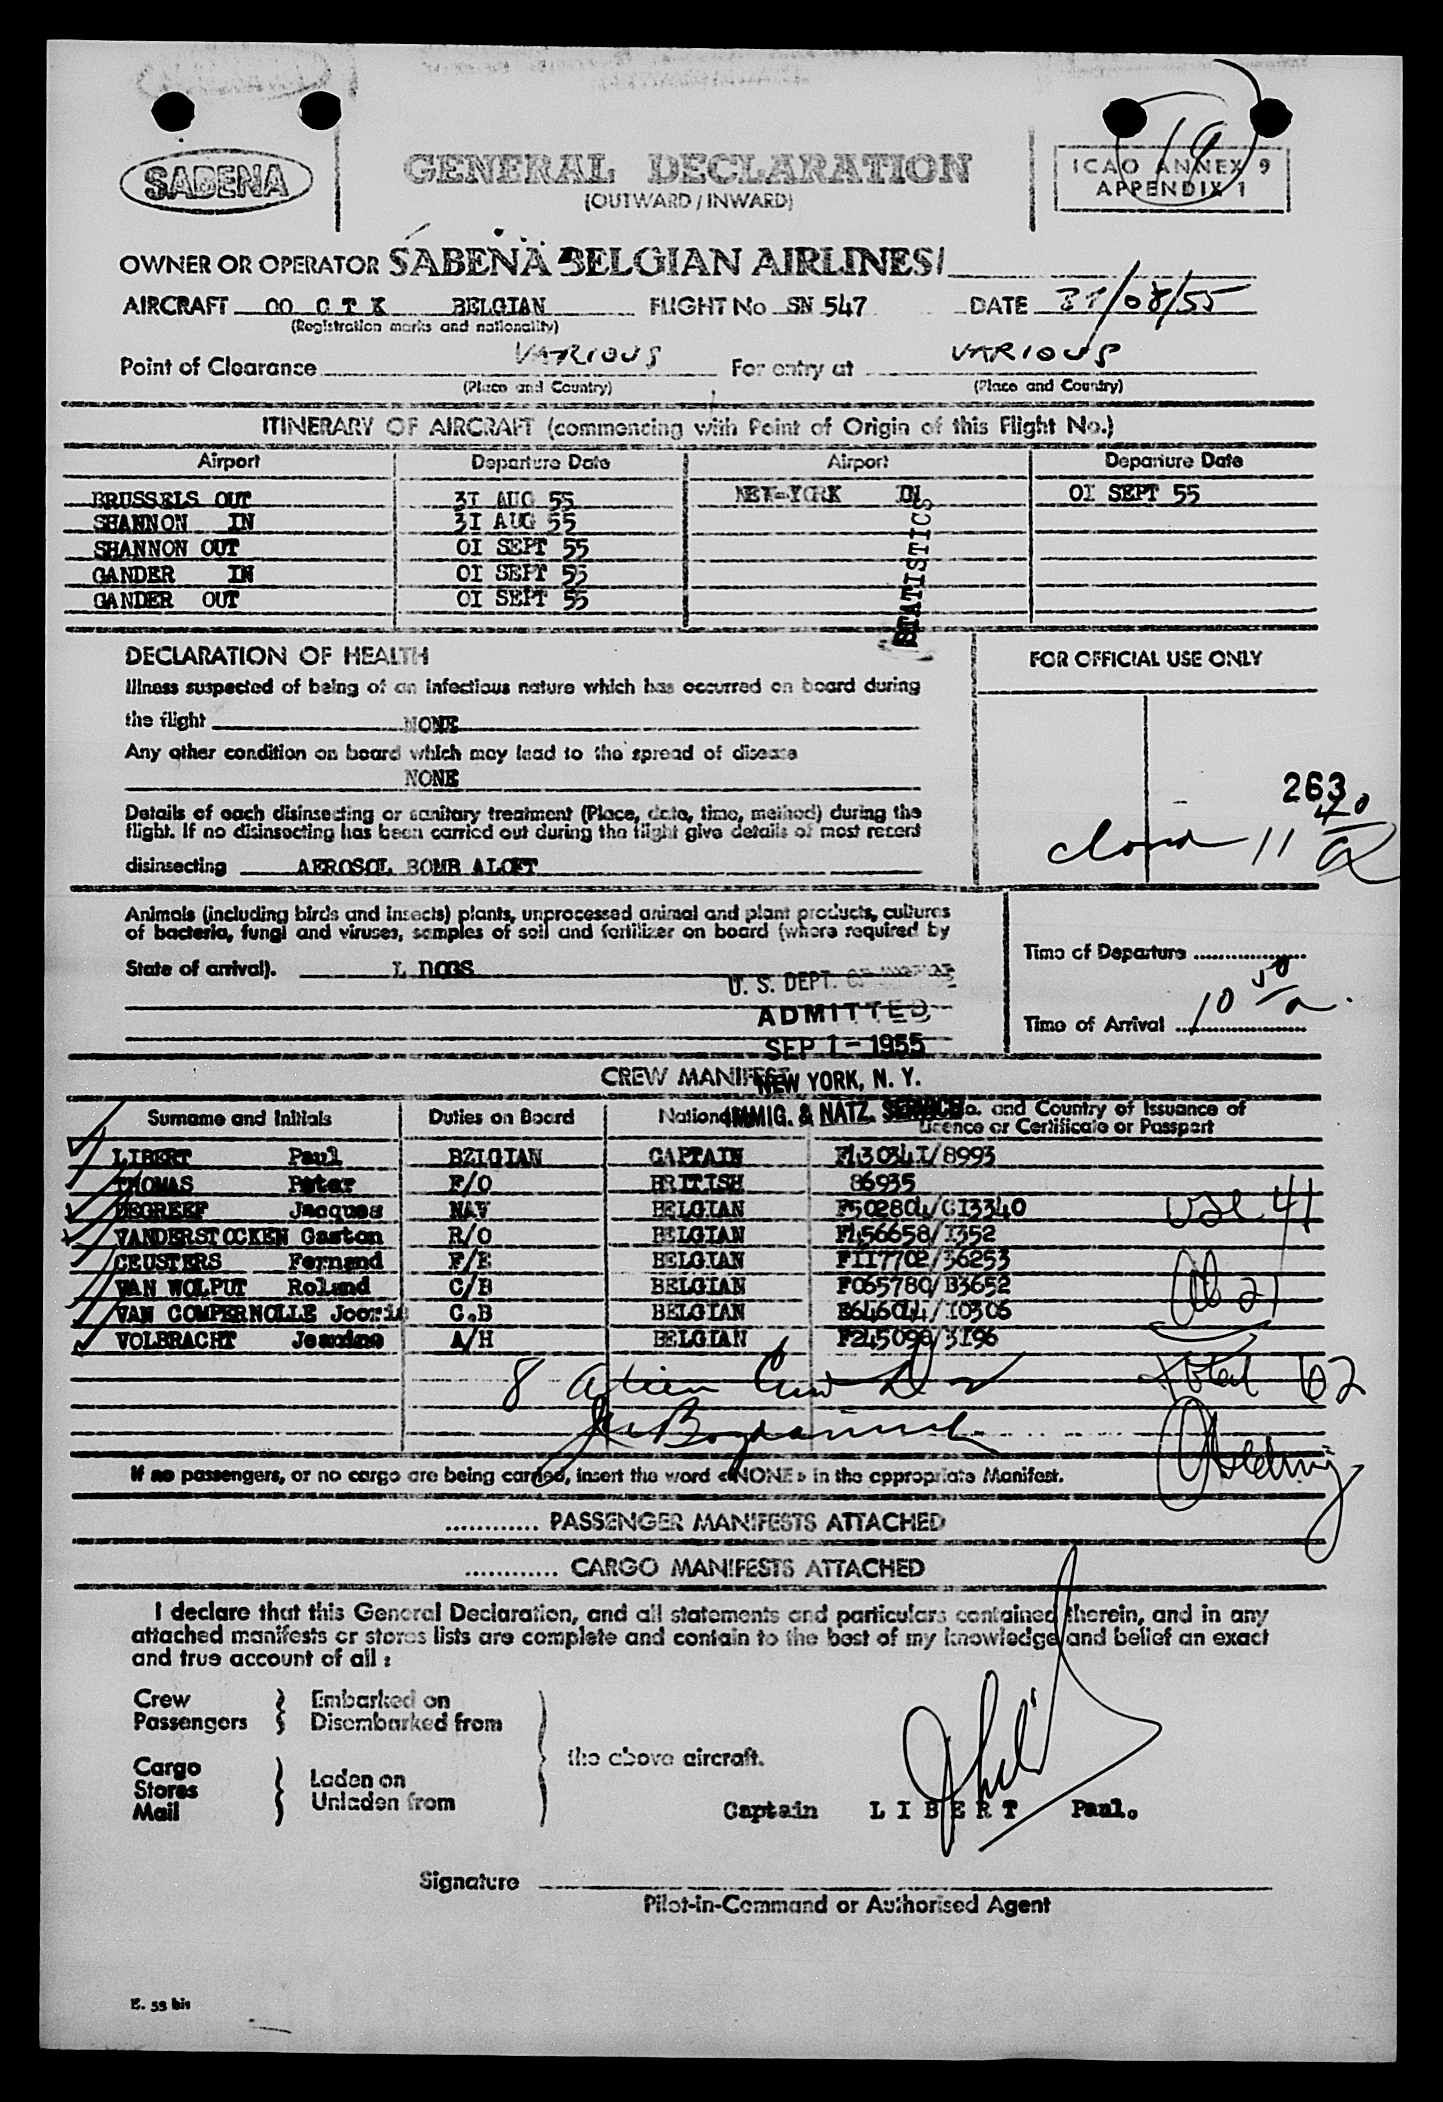 SABENA
GENERAL DECLARATION
(OUTWARD / INWARD)
ICAO ANNEX 9
APPENDIX 1
19
OWNER OR OPERATOR SABENA BELGIAN AIRLINES/
AIRCRAFT OO C T K BELGIAN FLIGHT No SN 547 DATE 31/08/55
(Registration marks and nationality)
Point of Clearance VARIOUS For entry at VARIOUS
(Place and Country) (Place and Country)
ITINERARY OF AIRCRAFT (commencing with Point of Origin of this Flight No.)
Airport Departure Date Airport Departure Date
BRUSSELS OUT 3I AUG 55 NEW-YORK IN OI SEPT 55
SHANNON IN 3I AUG 55
SHANNON OUT OI SEPT 55
GANDER IN OI SEPT 55
GANDER OUT OI SEPT 55
STATISTICS
DECLARATION OF HEALTH
FOR OFFICIAL USE ONLY
Illness suspected of being of an infectious nature which has occurred on board during
the flight NONE
Any other condition on board which may lead to the spread of disease
NONE
263
Details of each disinsecting or sanitary treatment (Place, date, time, method) during the
flight. If no disinsecting has been carried out during the flight give details of most recent
closed 11 40 a
disinsecting AEROSOL BOMB ALOFT
Animals (including birds and insects) plants, unprocessed animal and plant products, cultures
of bacteria, fungi and viruses, samples of soil and fertilizer on board (where required by
State of arrival). DOGS
Time of Departure
U. S. DEPT. OF JUSTICE
ADMITTED
Time of Arrival 10 50 a.
SEP 1 - 1955
CREW MANIFEST
NEW YORK, N. Y.
IMMIG. & NATZ. SERVICE
Surname and Initials Duties on Board Nationality No. and Country of Issuance of
Licence or Certificate or Passport
LIBERT Paul BELGIAN CAPTAIN F43034I/8993
THOMAS Peter F/O BRITISH 86935
DEGREEF Jacques NAV BELGIAN F502804/CI3340
VANDERSTOCKEN Gaston R/O BELGIAN F456658/I352
CEUSTERS Fernand F/E BELGIAN FII7702/36253
VAN WOLPUT Roland C/B BELGIAN F065780/B3652
VAN COMPERNOLLE Jooris C.B BELGIAN E646044/I0306
VOLBRACHT Jeanine A/H BELGIAN F245098/3I96
USC 41
All 21
Total 62
8 Alien Crew
If no passengers, or no cargo are being carried, insert the word «NONE» in the appropriate Manifest.
............ PASSENGER MANIFESTS ATTACHED
............ CARGO MANIFESTS ATTACHED
I declare that this General Declaration, and all statements and particulars contained therein, and in any
attached manifests or stores lists are complete and contain to the best of my knowledge and belief an exact
and true account of all :
Crew Embarked on
Passengers Disembarked from
the above aircraft.
Cargo
Stores Laden on
Mail Unladen from
Captain L I B E R T Paul.
Signature
Pilot-in-Command or Authorised Agent
E. 53 bis